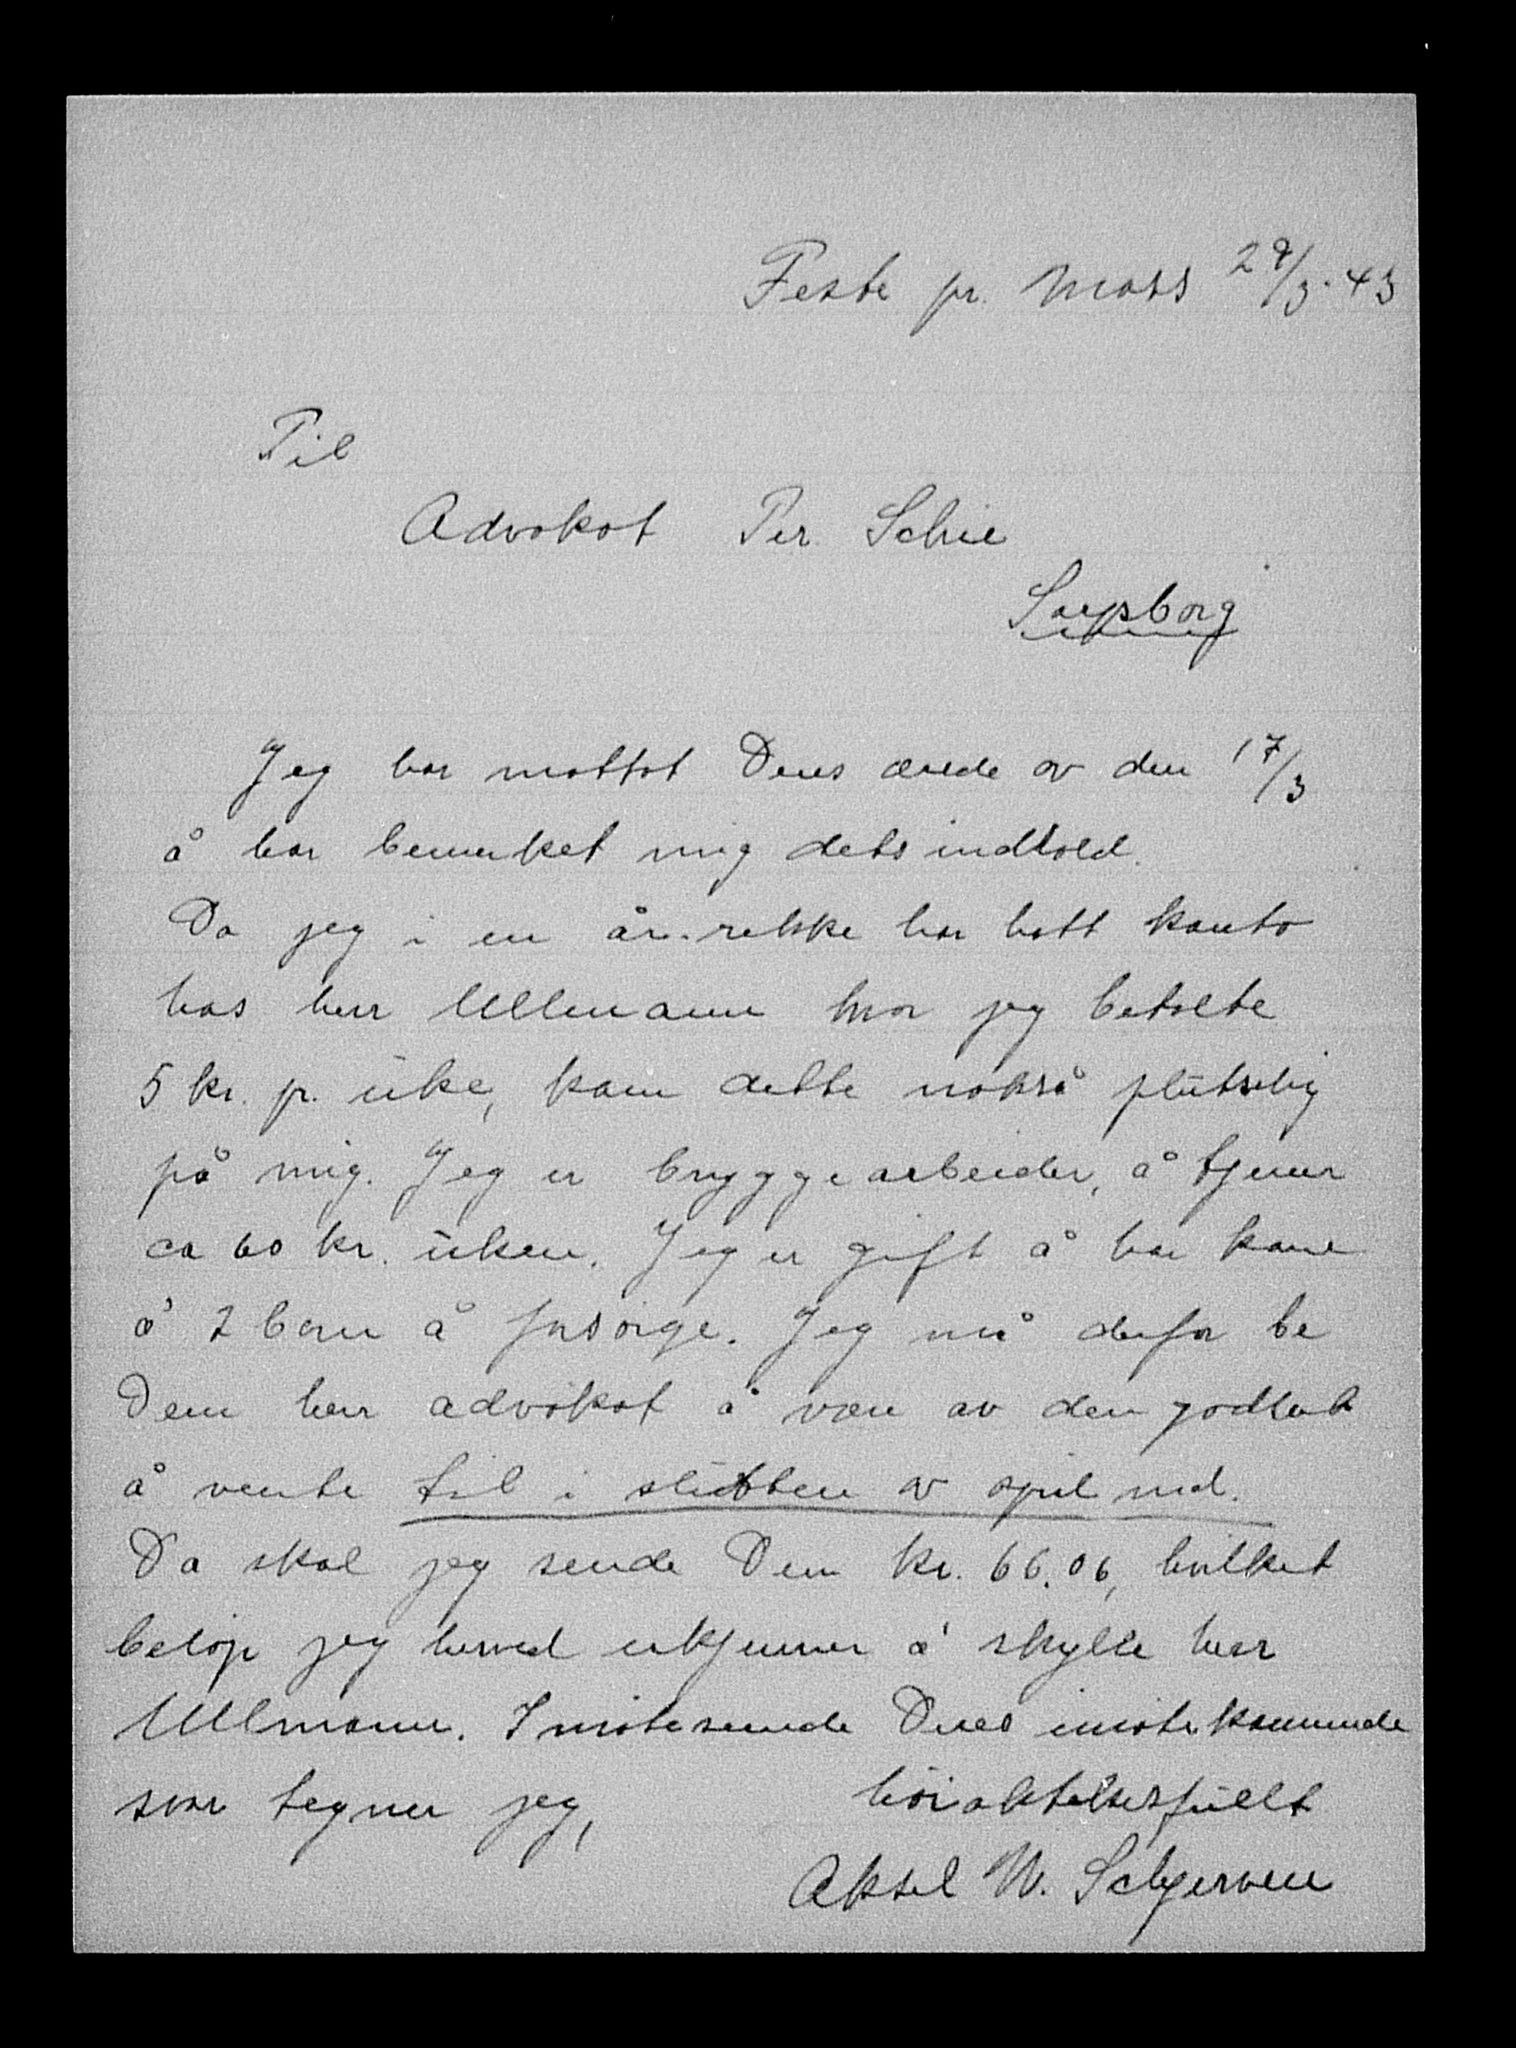 Feste pr. Moss 29/3. 43
Til
Advokat Per Schie
Sarpsborg
Jeg har mottat Deres ærede av den 17/3
å har bemerket mig dets indhold.
Da jeg i en år. rekke har hatt konto
hos herr Ullmann hvor jeg betalte
5 kr. pr. uke, kom dette nokså plutselig
på mig. Jeg er bryggearbeider, å tjener
ca 60 kr. uken. Jeg er gift å har kone
å 2 barn å forsörge. Jeg må derfor be
Dem herr advokat å være av den godhet
å vente til i slutten av april md.
Da skal jeg sende Dem kr. 66.06, hvilket
belöp jeg herved erkjenner å skylle herr
Ullmann. Imöteseende Deres imötekommende
svar tegner jeg,
höiaktelsesfullt
Aksel W. Schjerven